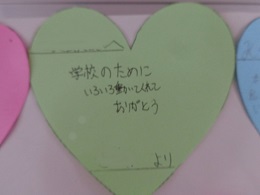 へ
学校のために
いろいろ動いてくれて
ありがとう
より